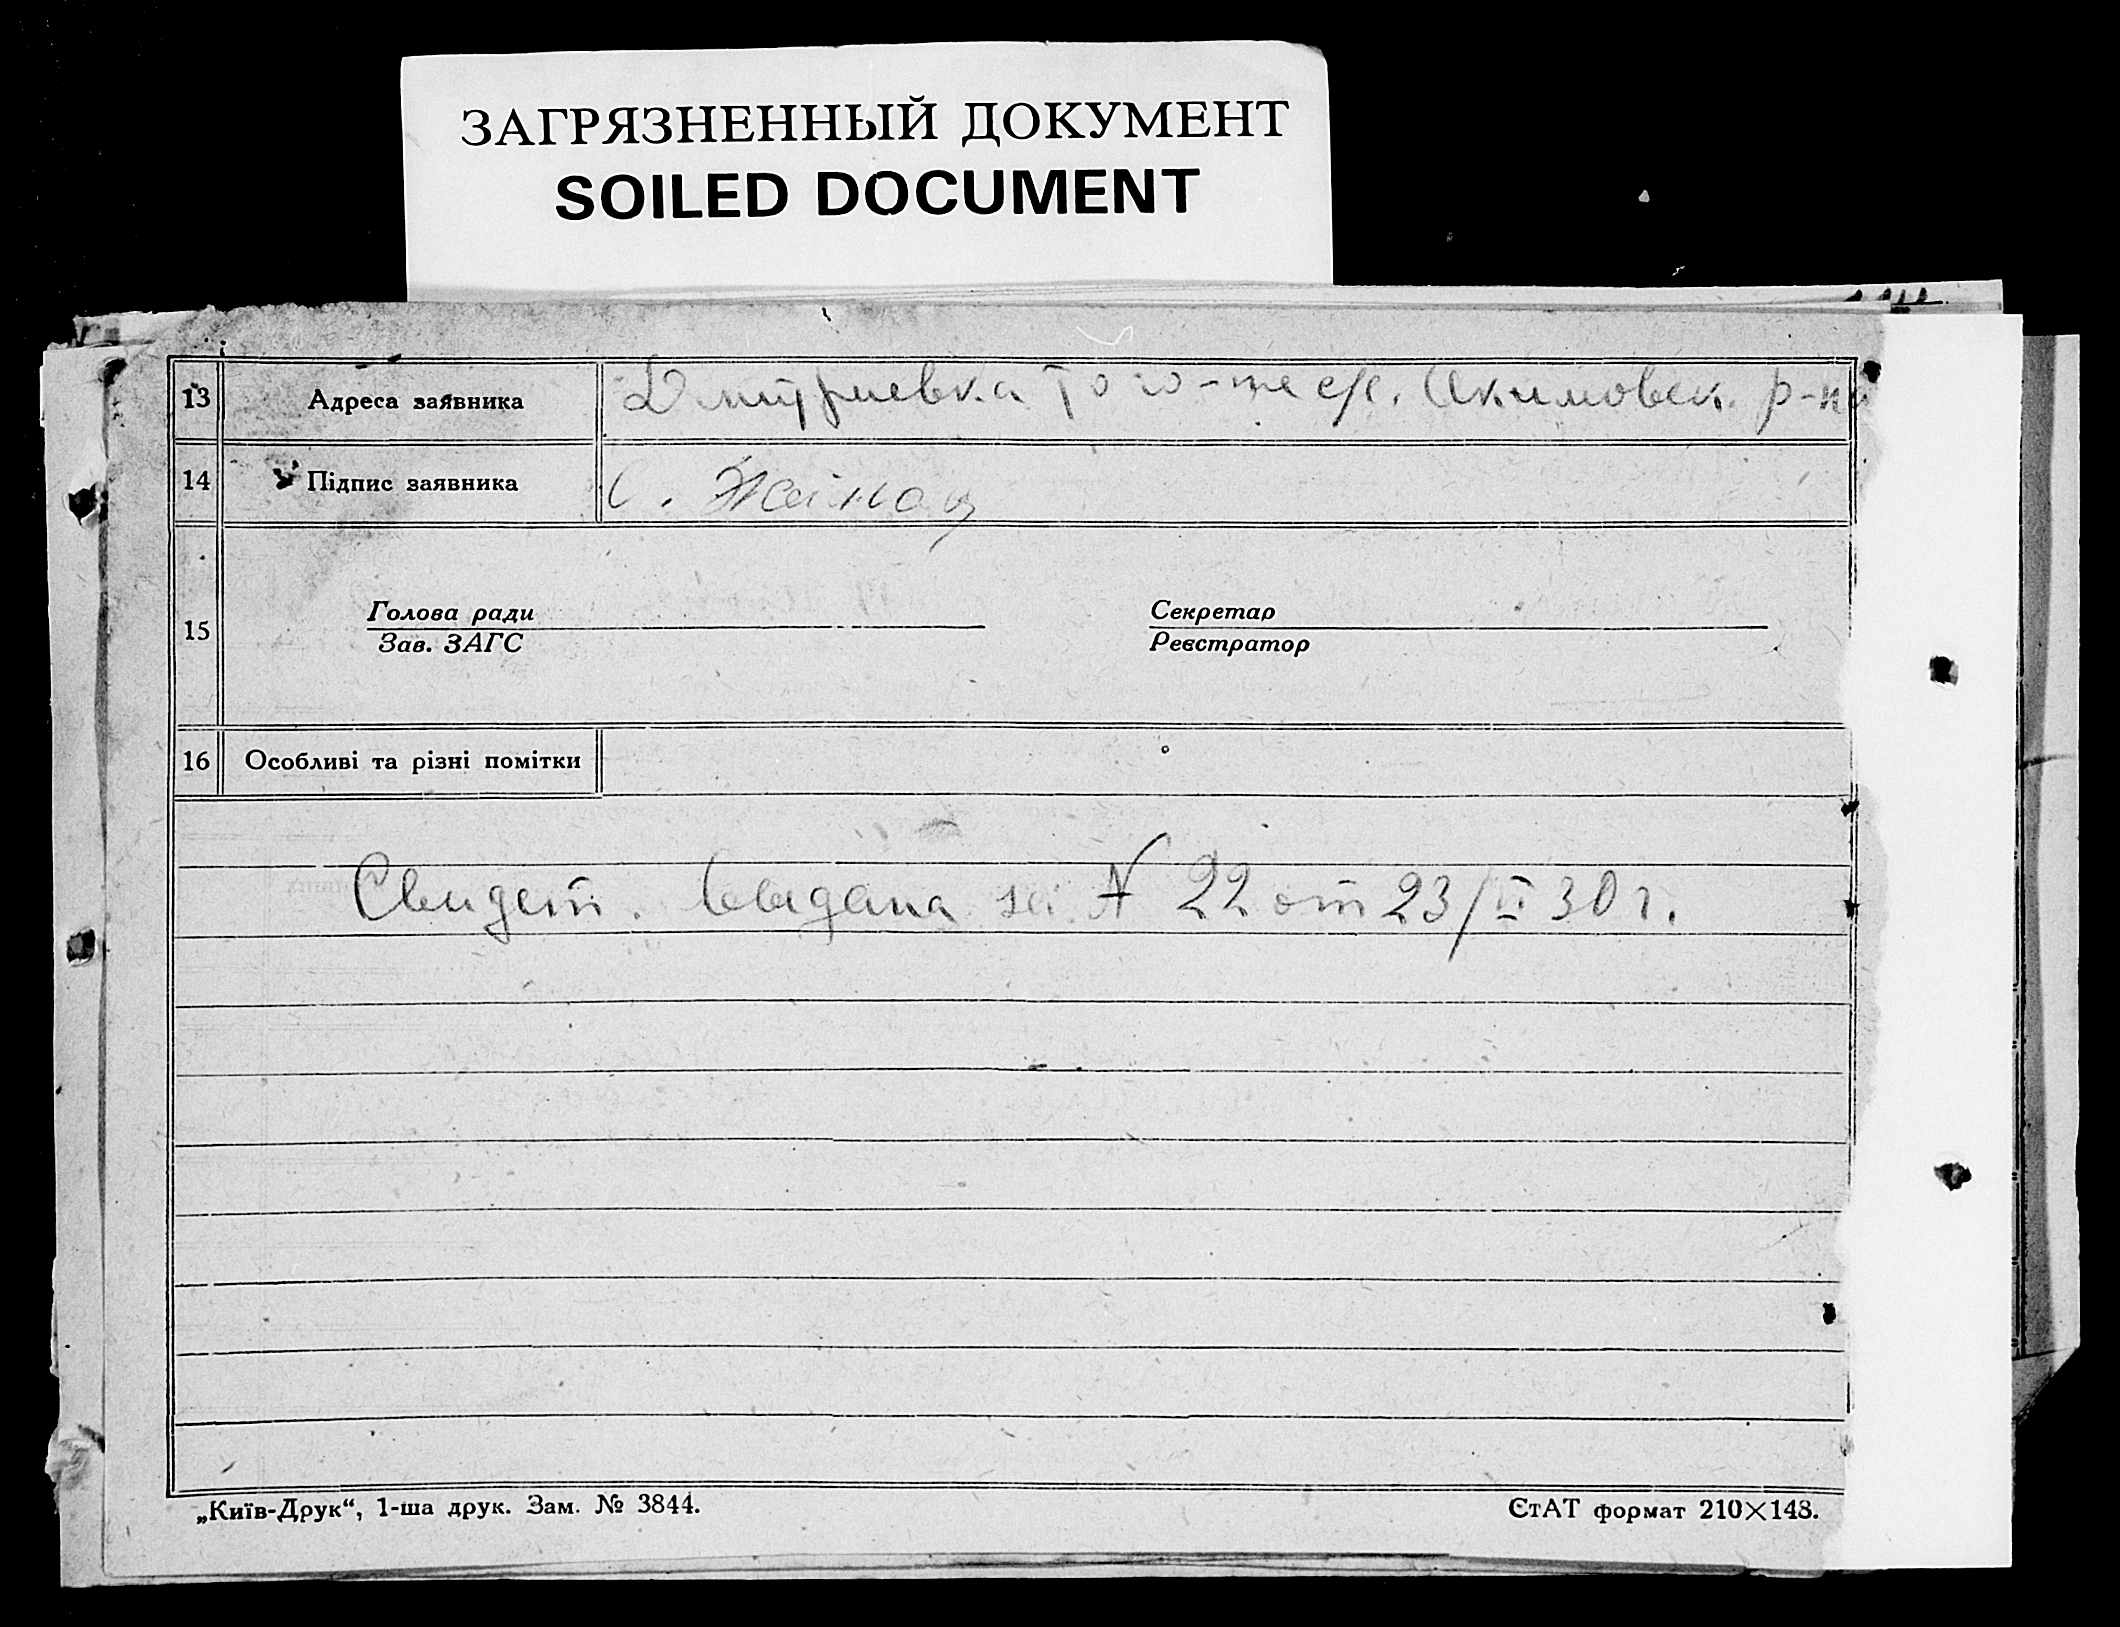 ЗАГРЯЗНЕННЫЙ ДОКУМЕНТ
SOILED DOCUMENT
13 Адреса заявника Дмитриевка того-же с/с. Акимовск. р-на
14 Підпис заявника С.
Голова ради Секретар
15
Зав. ЗАГС Реєстратор
16 Особливі та різні помітки
Свидет. выдана за N 22 от 23/II 30 г.
„Київ-Друк“, 1-ша друк. Зам. № 3844. СтАТ формат 210×148.